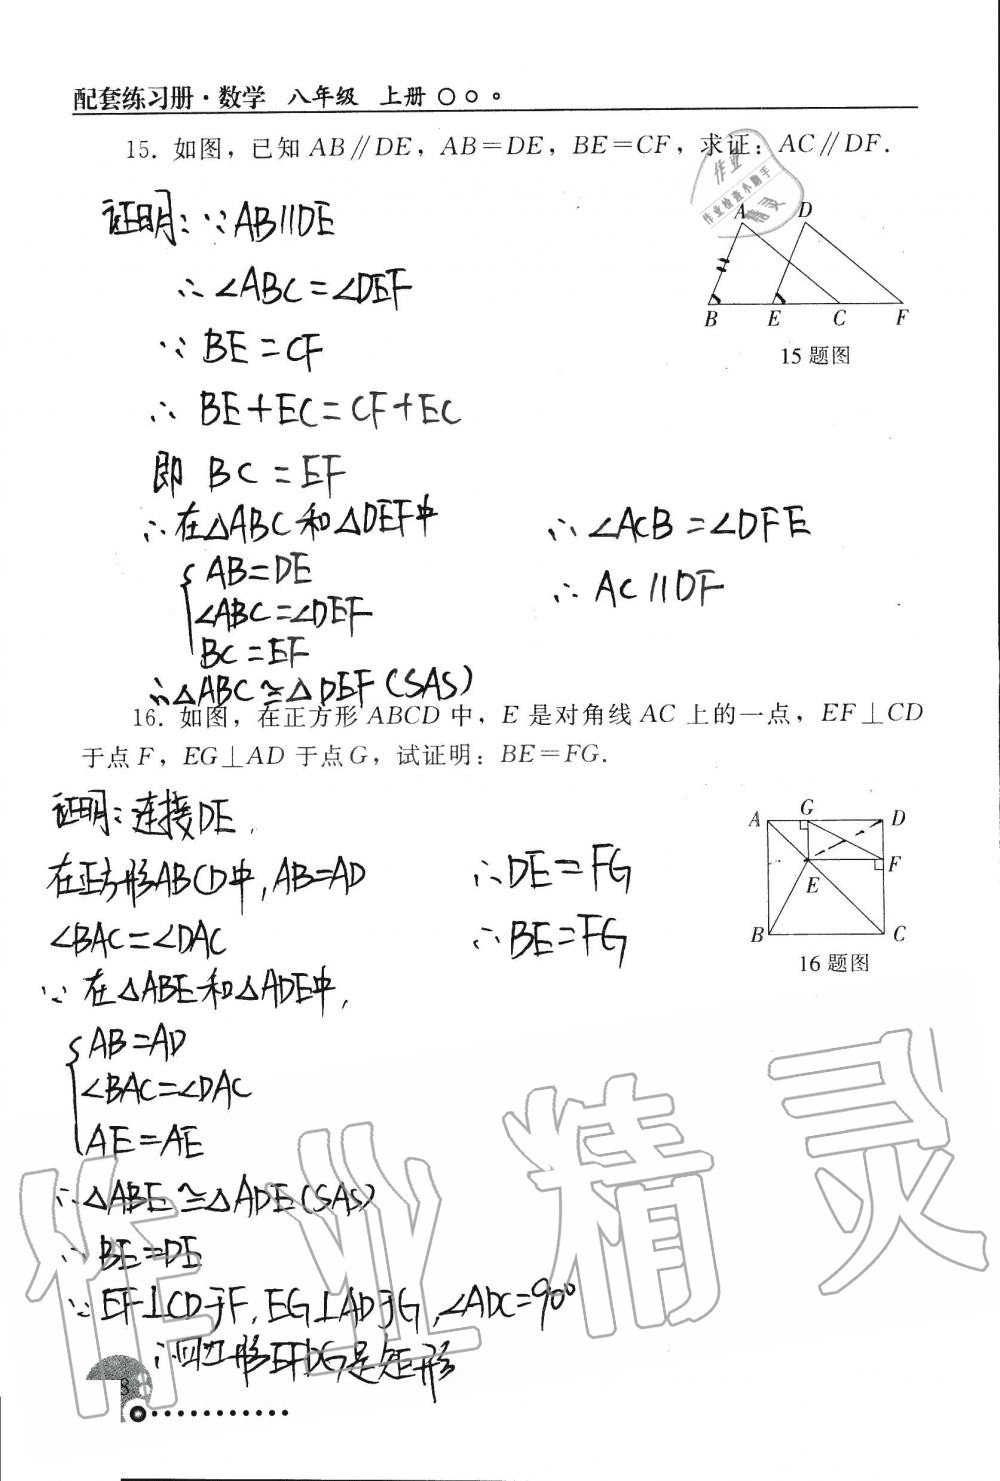 配套练习册·数学 八年级 上册
15. 如图，已知 AB∥DE，AB=DE，BE=CF，求证：AC∥DF.
作业
作业检查小助手
精灵
证明：∵AB∥DE
∴∠ABC=∠DEF
∵BE=CF
∴BE+EC=CF+EC
即 BC=EF
∴在△ABC和△DEF中
AB=DE
∠ABC=∠DEF
BC=EF
∴△ABC≌△DEF(SAS)
∴∠ACB=∠DFE
∴AC∥DF
A D
B E C F
15题图
16. 如图，在正方形 ABCD 中，E 是对角线 AC 上的一点，EF⊥CD
于点 F，EG⊥AD 于点G，试证明：BE=FG.
证明：连接DE，
在正方形ABCD中，AB=AD
∠BAC=∠DAC
∵在△ABE和△ADE中，
AB=AD
∠BAC=∠DAC
AE=AE
∴△ABE≌△ADE(SAS)
∴BE=DE
∵EF⊥CD于F，EG⊥AD于G，∠ADC=90°
∴四边形EFDG是矩形
∴DE=FG
∴BE=FG
A G D
F
E
B C
16题图
作业精灵
8